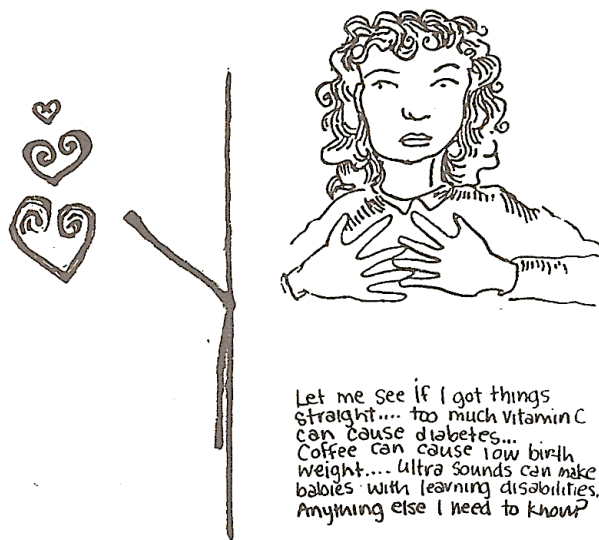 Let me see if I got things
straight.... too much Vitamin C
can cause diabetes...
Coffee can cause low birth
weight.... Ultra Sounds can make
babies with learning disabilities.
Anything else I need to know?